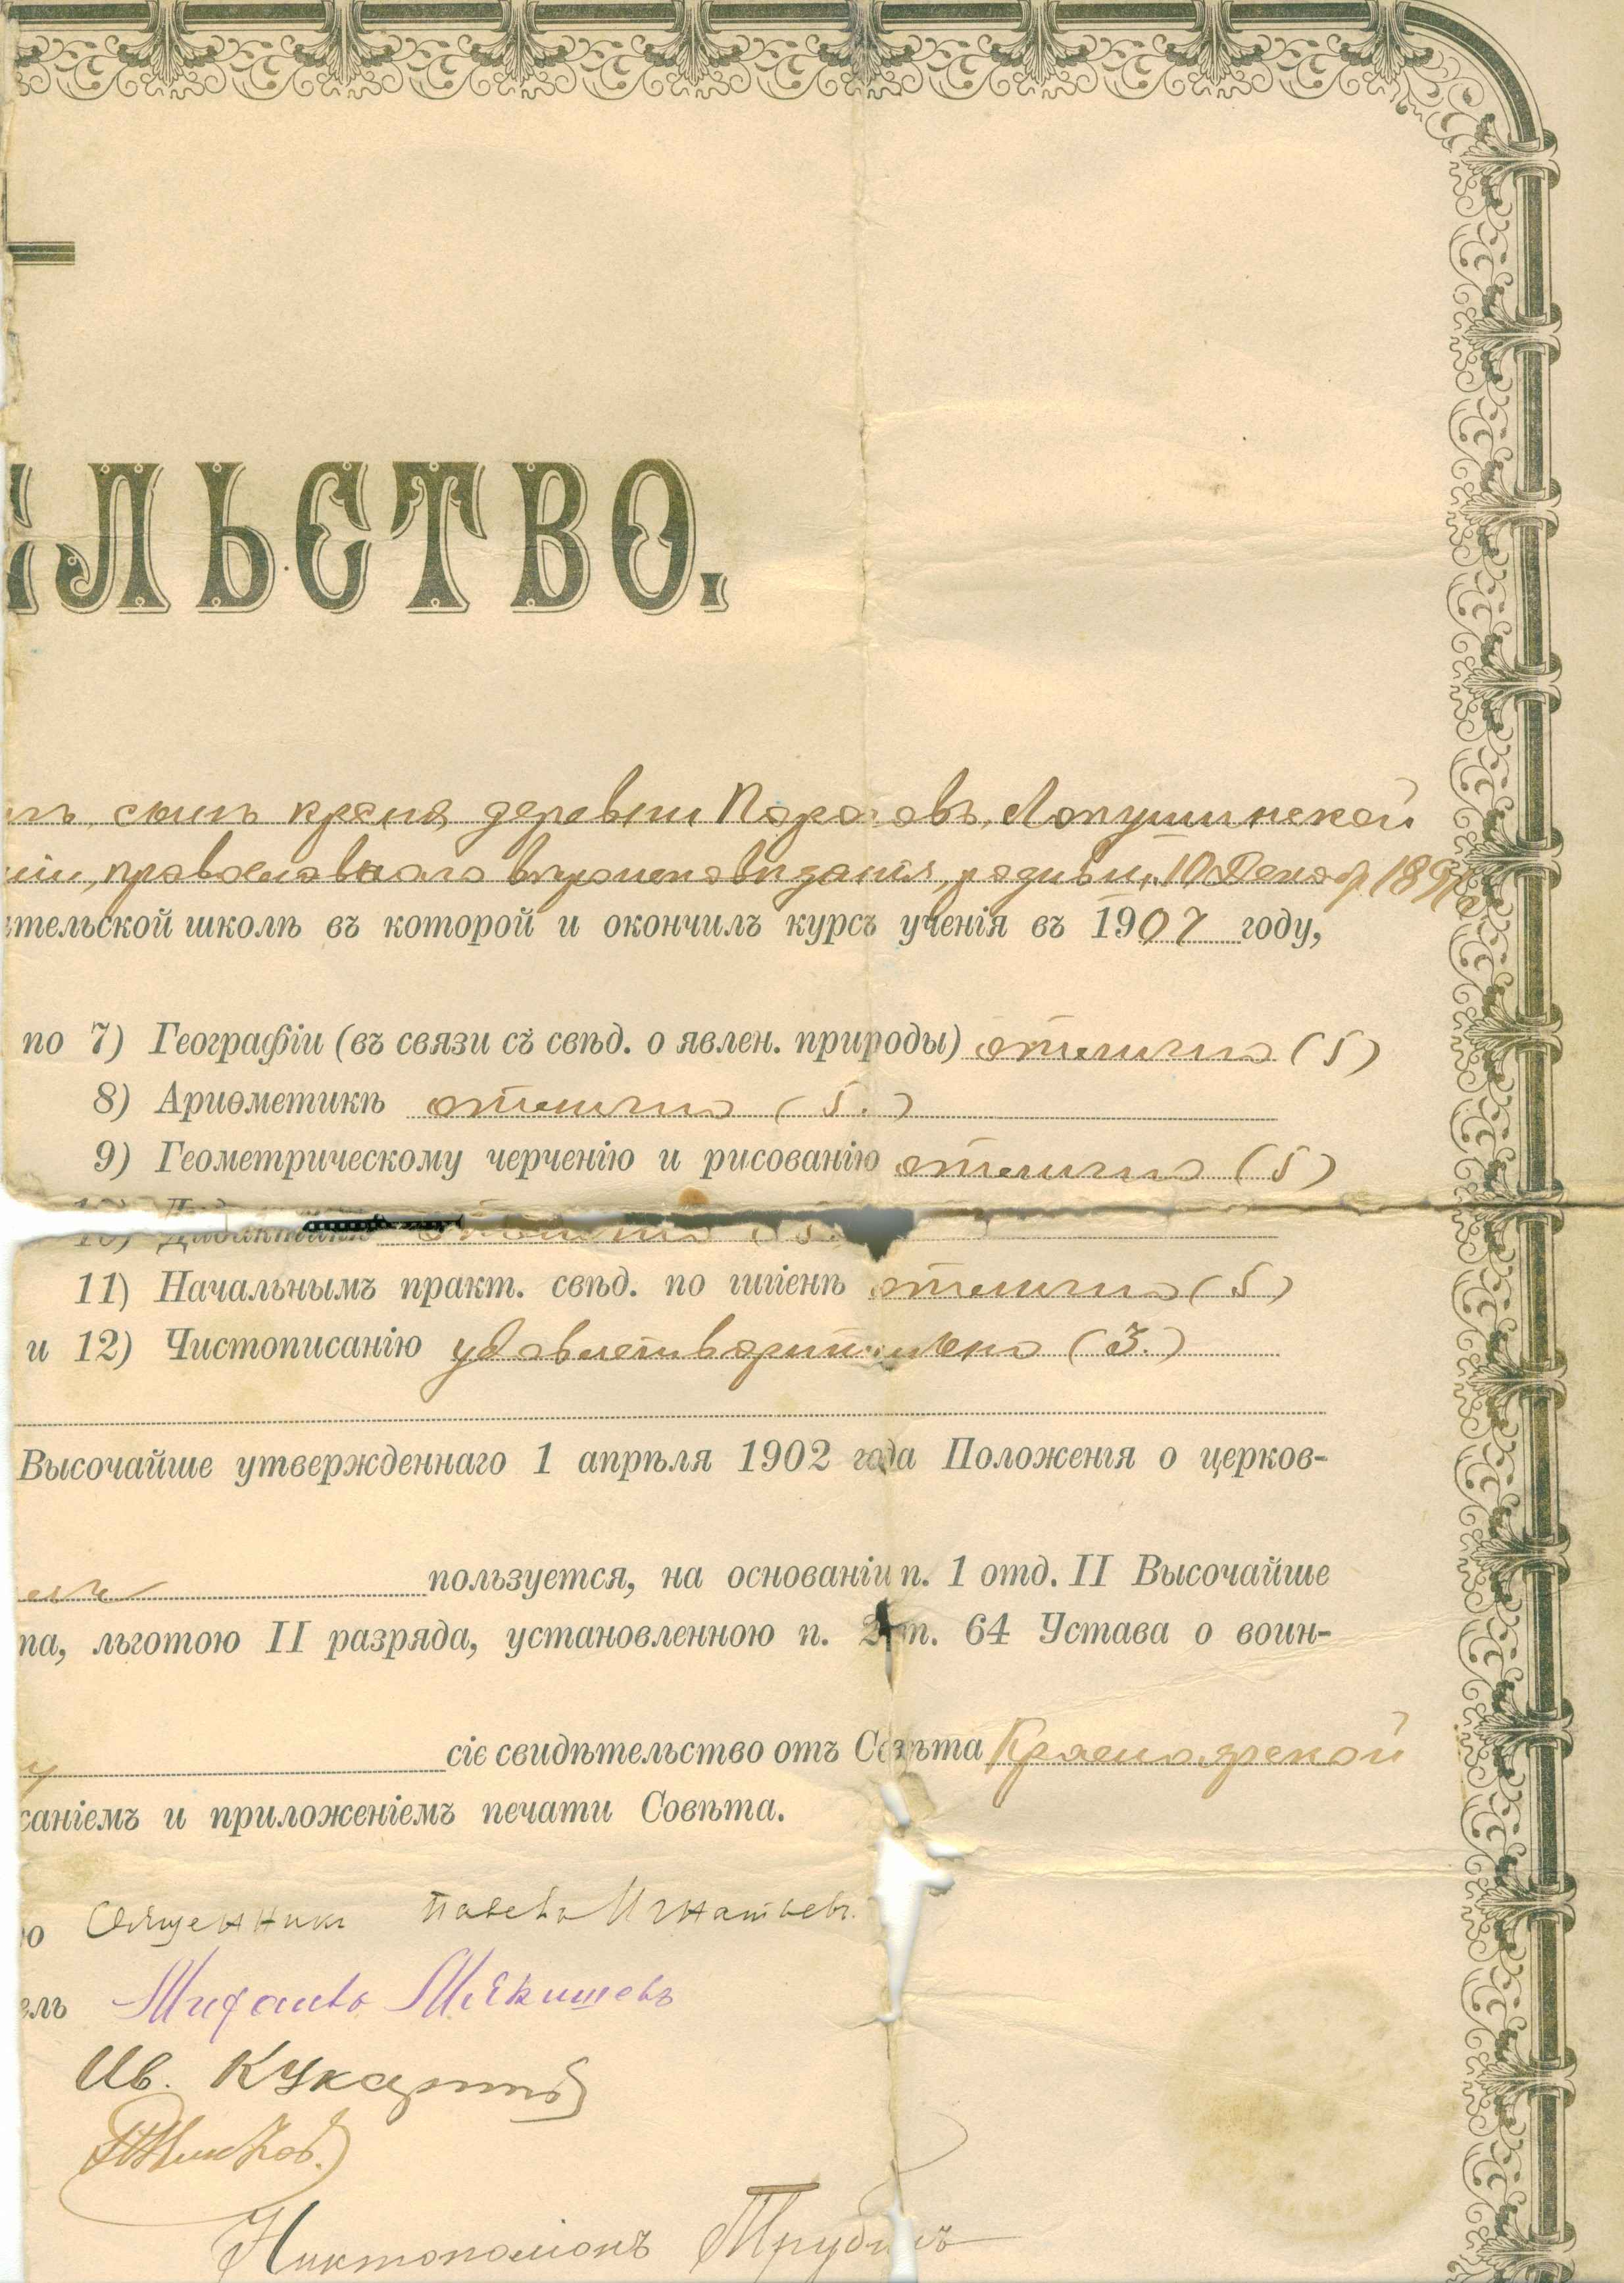 ЛЬСТВО.
сынъ крест. деревни Лопушинской
православнаго вѣроисповѣданія, родивш. 10 Декаб. 189
ительской школѣ въ которой и окончилъ курсъ ученія въ 1907 году,
по 7) Географіи (въ связи съ свѣд. о явлен. природы) отлично (5)
8) Ариѳметикѣ отлично (5.)
9) Геометрическому черченію и рисованію отлично (5)
10) Дидактикѣ отлично (5.)
11) Начальнымъ практ. свѣд. по гигіенѣ отлично (5)
и 12) Чистописанію удовлетворительно (3.)
Высочайше утвержденнаго 1 апрѣля 1902 года Положенія о церков-
пользуется, на основаніи п. 1 отд. II Высочайше
та, льготою II разряда, установленною п. 2 ст. 64 Устава о воин-
сіе свидѣтельство отъ Совѣта Красноярской
саніемъ и приложеніемъ печати Совѣта.
Священникъ Павелъ Игнатьевъ.
ель Михаилъ Мякишевъ
Ив. Кукарт
Никтополіонъ Трубинъ